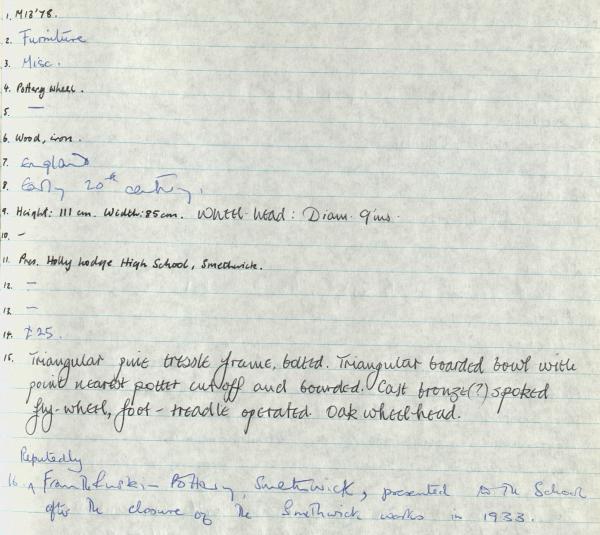 1. M13'78.
2. Furniture
3. Misc.
4. Pottery wheel.
5. —
6. Wood, iron.
7. England
8. Early 20th century.
9. Height: 111 cm. Width: 85 cm. Wheel-head: Diam. 9ins.
10. -
11. Pres. Holly Lodge High School, Smethwick.
12. —
13. —
14. £25.
15. Triangular pine trestle frame, bolted. Triangular boarded bowl with
point nearest potter cut off and boarded. Cast bronze(?) spoked
fly-wheel, foot-treadle operated. Oak wheel-head.
Reputedly
16. ^ From the Ruskin Pottery, Smethwick, presented to the School
after the closure of the Smethwick works in 1933.